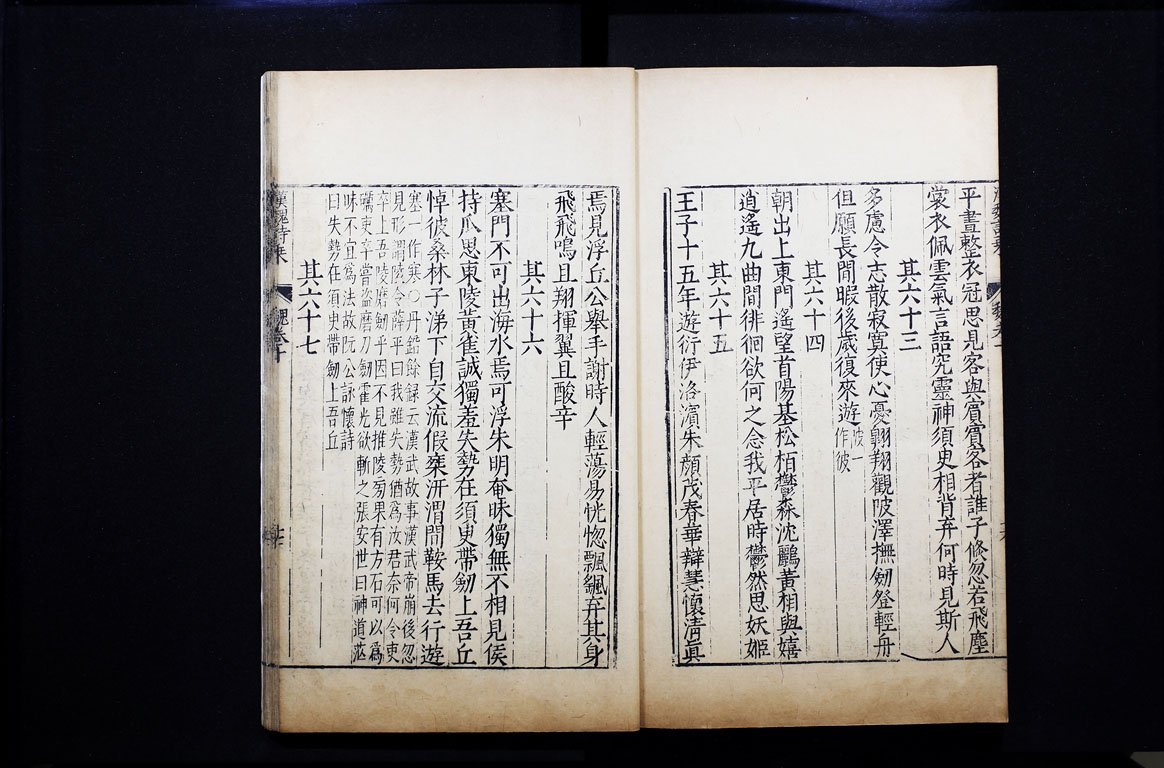 平晝整衣冠思見客與賓賓客者誰子倏忽若飛塵
裳衣佩雲氣言語究靈神須臾相背弃何時見斯人
其六十三
多慮令志散寂寞使心憂翺翔觀陂澤撫劒登輕舟
但願長閒暇後歲復來遊陂一作彼
其六十四
朝出上東門遙望首陽基松栢鬱森沈鸝黃相與嬉
逍遙九曲間徘徊欲何之念我平居時鬱然思妖姬
其六十五
王子十五年遊衍伊洛濱朱顏茂春華辯慧懷清眞
焉見浮丘公舉手謝時人輕蕩易恍惚飄颻弃其身
飛飛鳴且翔揮翼且酸辛
其六十六
塞門不可出海水焉可浮朱明奄昧獨無不相見侯
持瓜思東陵黃雀誠獨羞失勢在須臾帶劒上吾丘
悼彼桑林子涕下自交流假乘汧渭間鞍馬去行遊
塞一作寒○丹鉛餘録云漢武故事漢武帝崩後忽
見形謂陵令薛平曰我雖失勢猶爲汝君奈何令吏
卒上吾陵磨劒乎因不見推陵旁果有方石可以爲
礪吏卒嘗盜磨刀劒霍光欲斬之張安世曰神道茫
昧不宜爲法故阮公詠懷詩
曰失勢在須臾帶劒上吾丘
其六十七
漢魏詩乗
魏卷十